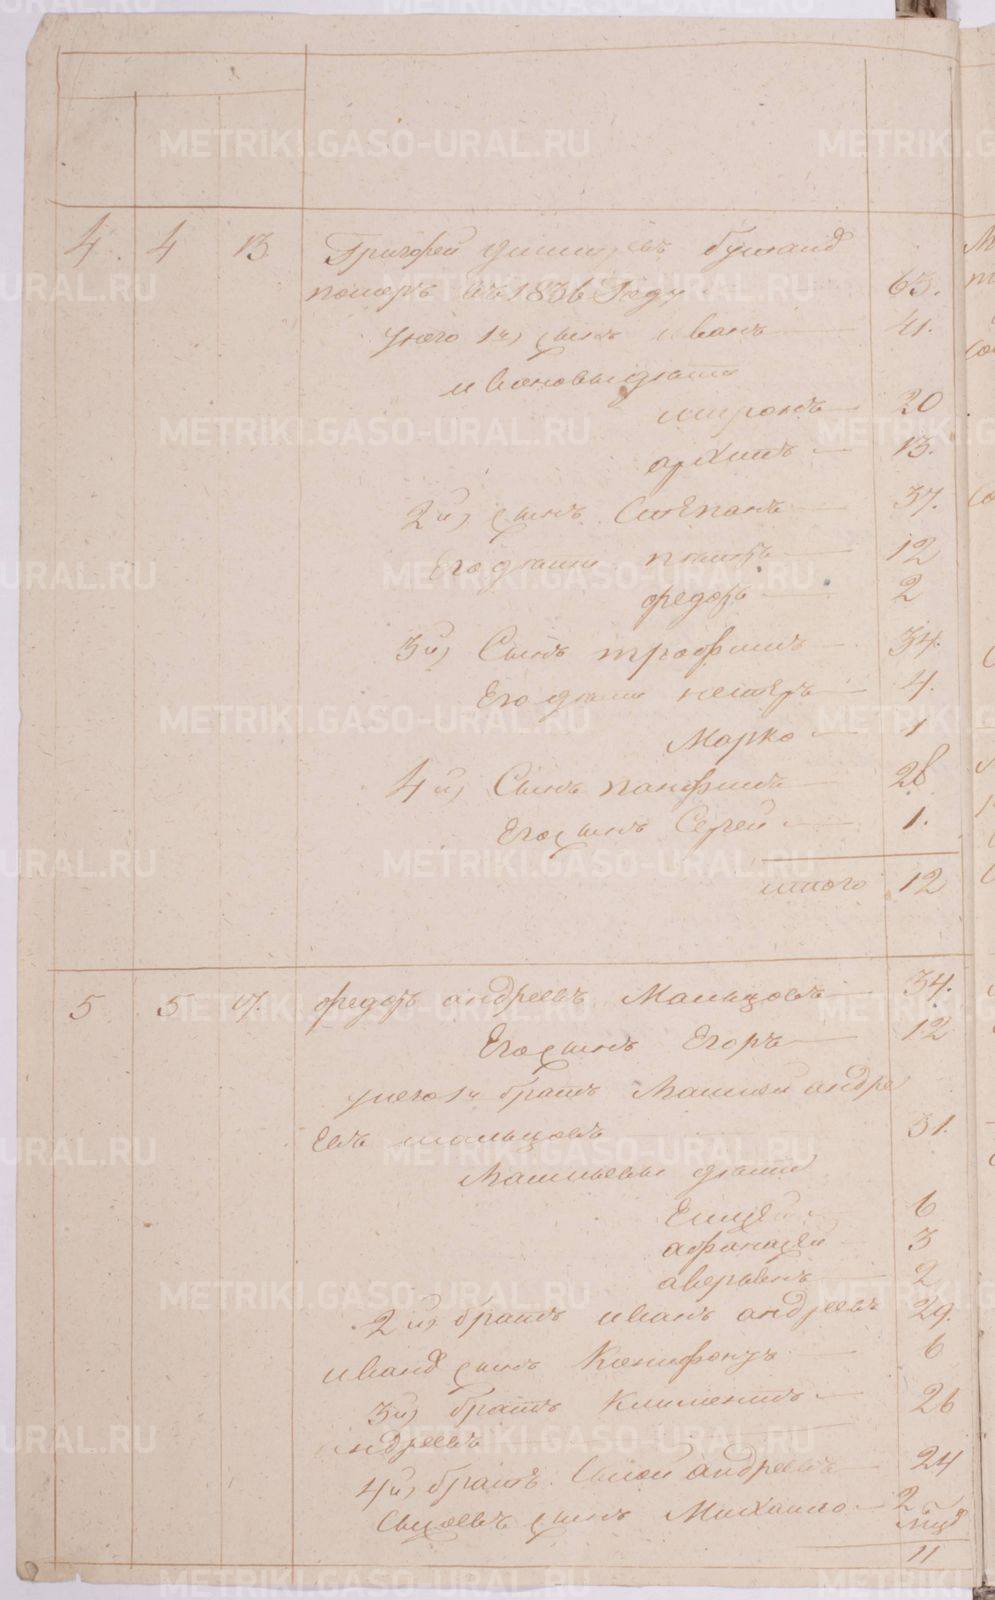 4 4 13 Григорей бушанд
померъ въ 1836 Году 63.
унего 1й) сынъ иванъ 41.
ивановы дѣти
миронъ 20
архипъ 13.
2й) сынъ Степанъ 37.
Его дѣти 12
федоръ 2
3й) Сынъ трофимъ 34.
Его дѣти нестеръ 4.
Марко 1
4й) Сынъ панфилъ 28.
Его сынъ Сергей 1.
итого 12
5 5 17. федоръ андреевъ Мальцовъ 34.
Его сынъ Егоръ 12
унего 1й братъ Матвей андре
евъ мальцовъ 31.
Матвевы дѣти
Елисей 6
афанасей 3
аверьянъ 2
2й) братъ иванъ андреевъ 29.
ивана сынъ Ксенифонтъ 6
3й) братъ Климентъ 26
андреевъ
4й) братъ Сысой андреевъ 24
Сысоевъ сынъ Михаило 2
11
METRIKI.GASO-URAL.RU